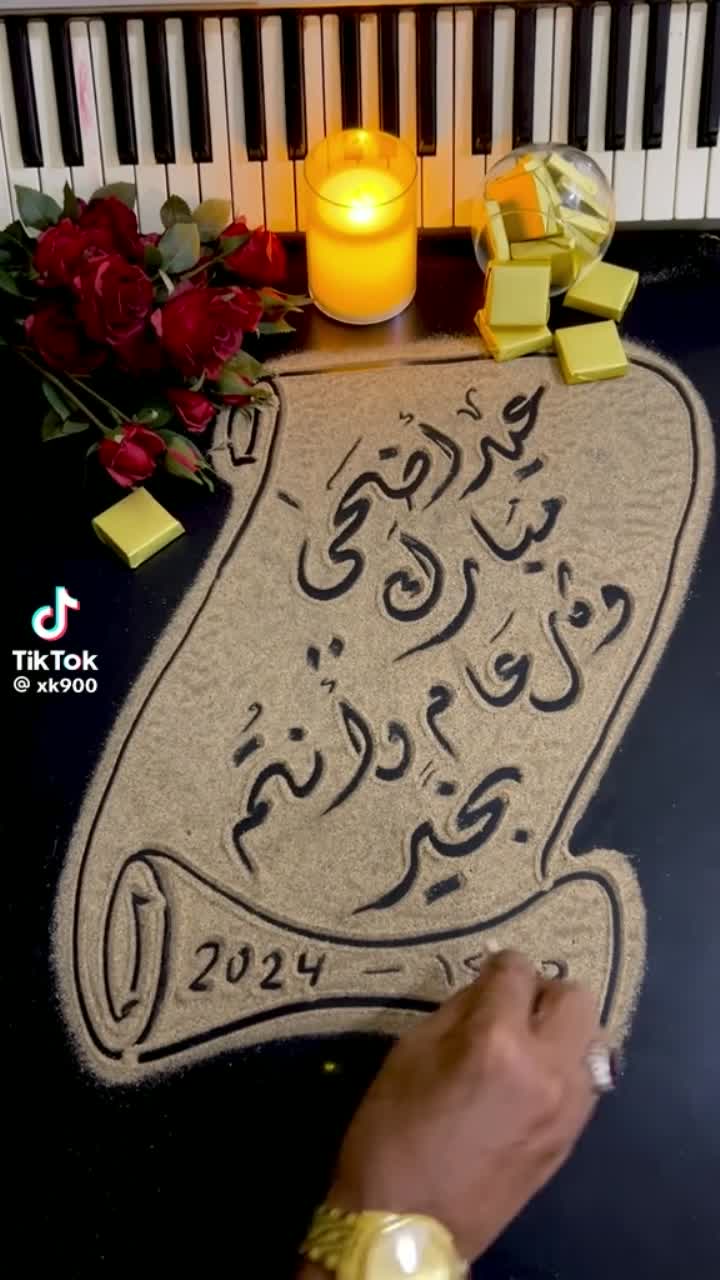 عيد أضحى
مبارك
وكل عام
وأنتم
بخير
2024 –
TikTok
@ xk900